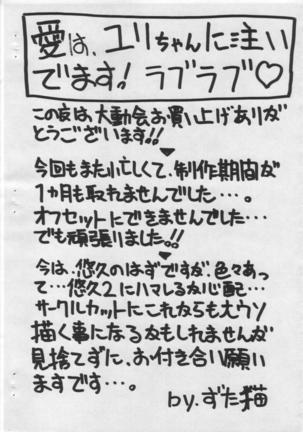 愛は、ユリちゃんに注い
でます！ラブラブ♡
この度は、大動会お買い上げありが
とうございます!!
今回もまた忙しくて、制作期間が
1か月も取れませんでした…。
オフセットにできませんでした…
でも頑張りました。!!
今は、悠久のはずですが、色々あっ
て…悠久2にハマしるか心配…
サークルカットにこれからも大ウソ
描く事になるかもしれませんが
見捨てずに、お付き合い願い
ますです…。
by.ずた猫